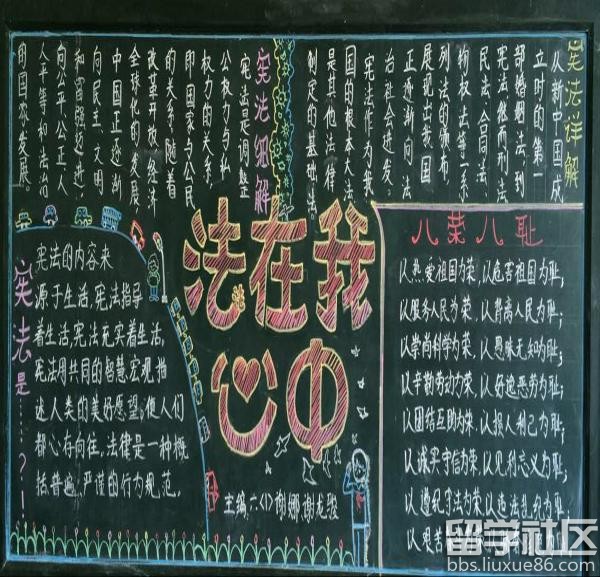 宪法详解
从新中国成
立时的第一
部婚姻法到
宪法继而刑法
民法、合同法、
物权法等一系
列法的颁布
展现出我国
正逐渐向法
治社会进发。
宪法作为我
国的根本大法
是其他法律
制定的基础法。
宪法细解
宪法是调整
公权力与私
权力的关系
即国家与公民
的关系,随着
改革开放、经济
全球化的发展,
中国正逐渐
向民主、文明
和富强迈进;
向公平、公正、人
人平等和法治
的国家发展。
法在我
心中
宪法是……?!
宪法的内容来
源于生活,宪法指导
着生活,宪法充实着生活,
宪法用共同的智慧,宏观描
述人类的美好愿望;使人们
都心存向往,法律是一种概
括普遍、严谨的行为规范。
八荣八耻
以热爱祖国为荣,以危害祖国为耻;
以服务人民为荣,以背离人民为耻;
以崇尚科学为荣,以愚昧无知为耻;
以辛勤劳动为荣,以好逸恶劳为耻;
以团结互助为荣,以损人利己为耻;
以诚实守信为荣,以见利忘义为耻;
以遵纪守法为荣,以违法乱纪为耻;
以艰苦
主编:六(1)谢娜,谢龙骏
留学社区
bbs.liuxue86.com